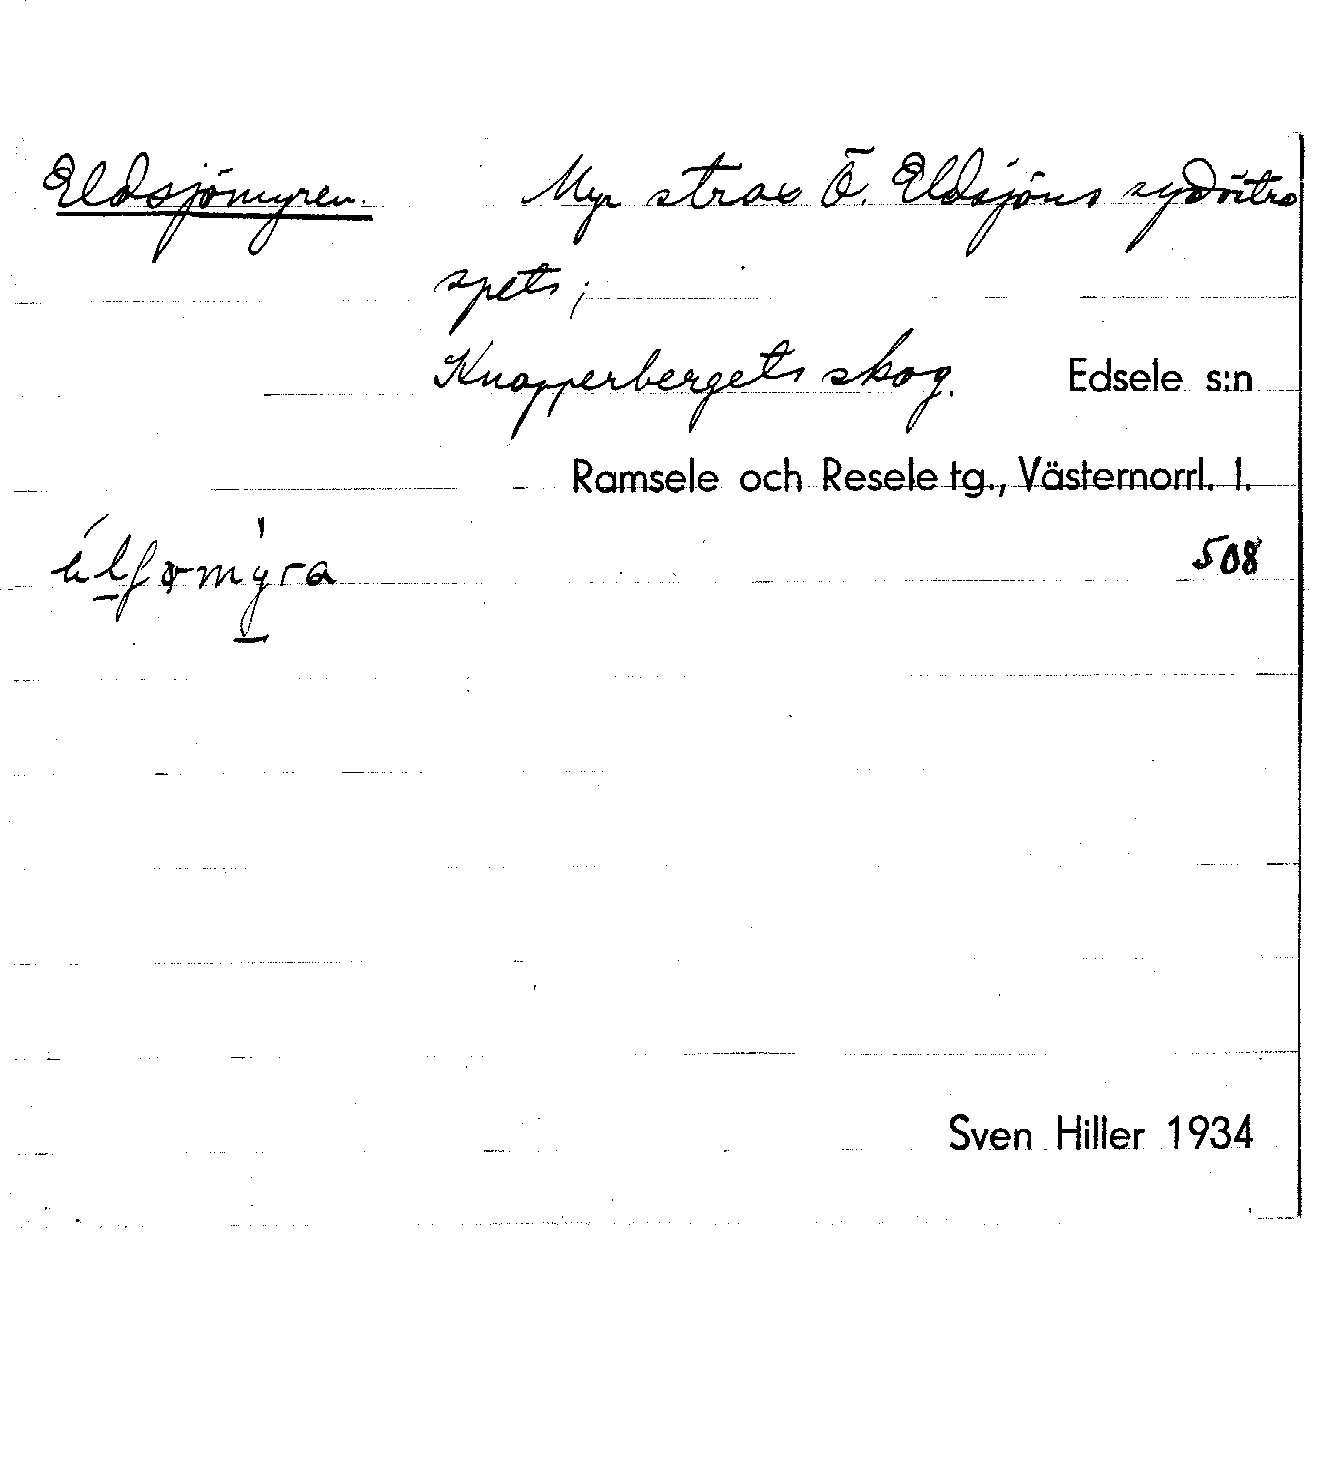 Eldsjömyren. Myr strax Ö. Eldsjöns sydöstra
spets;
Knapperbergets skog. Edsele s:n
Ramsele och Resele tg., Västernorrl. l.
508
Sven Hiller 1934